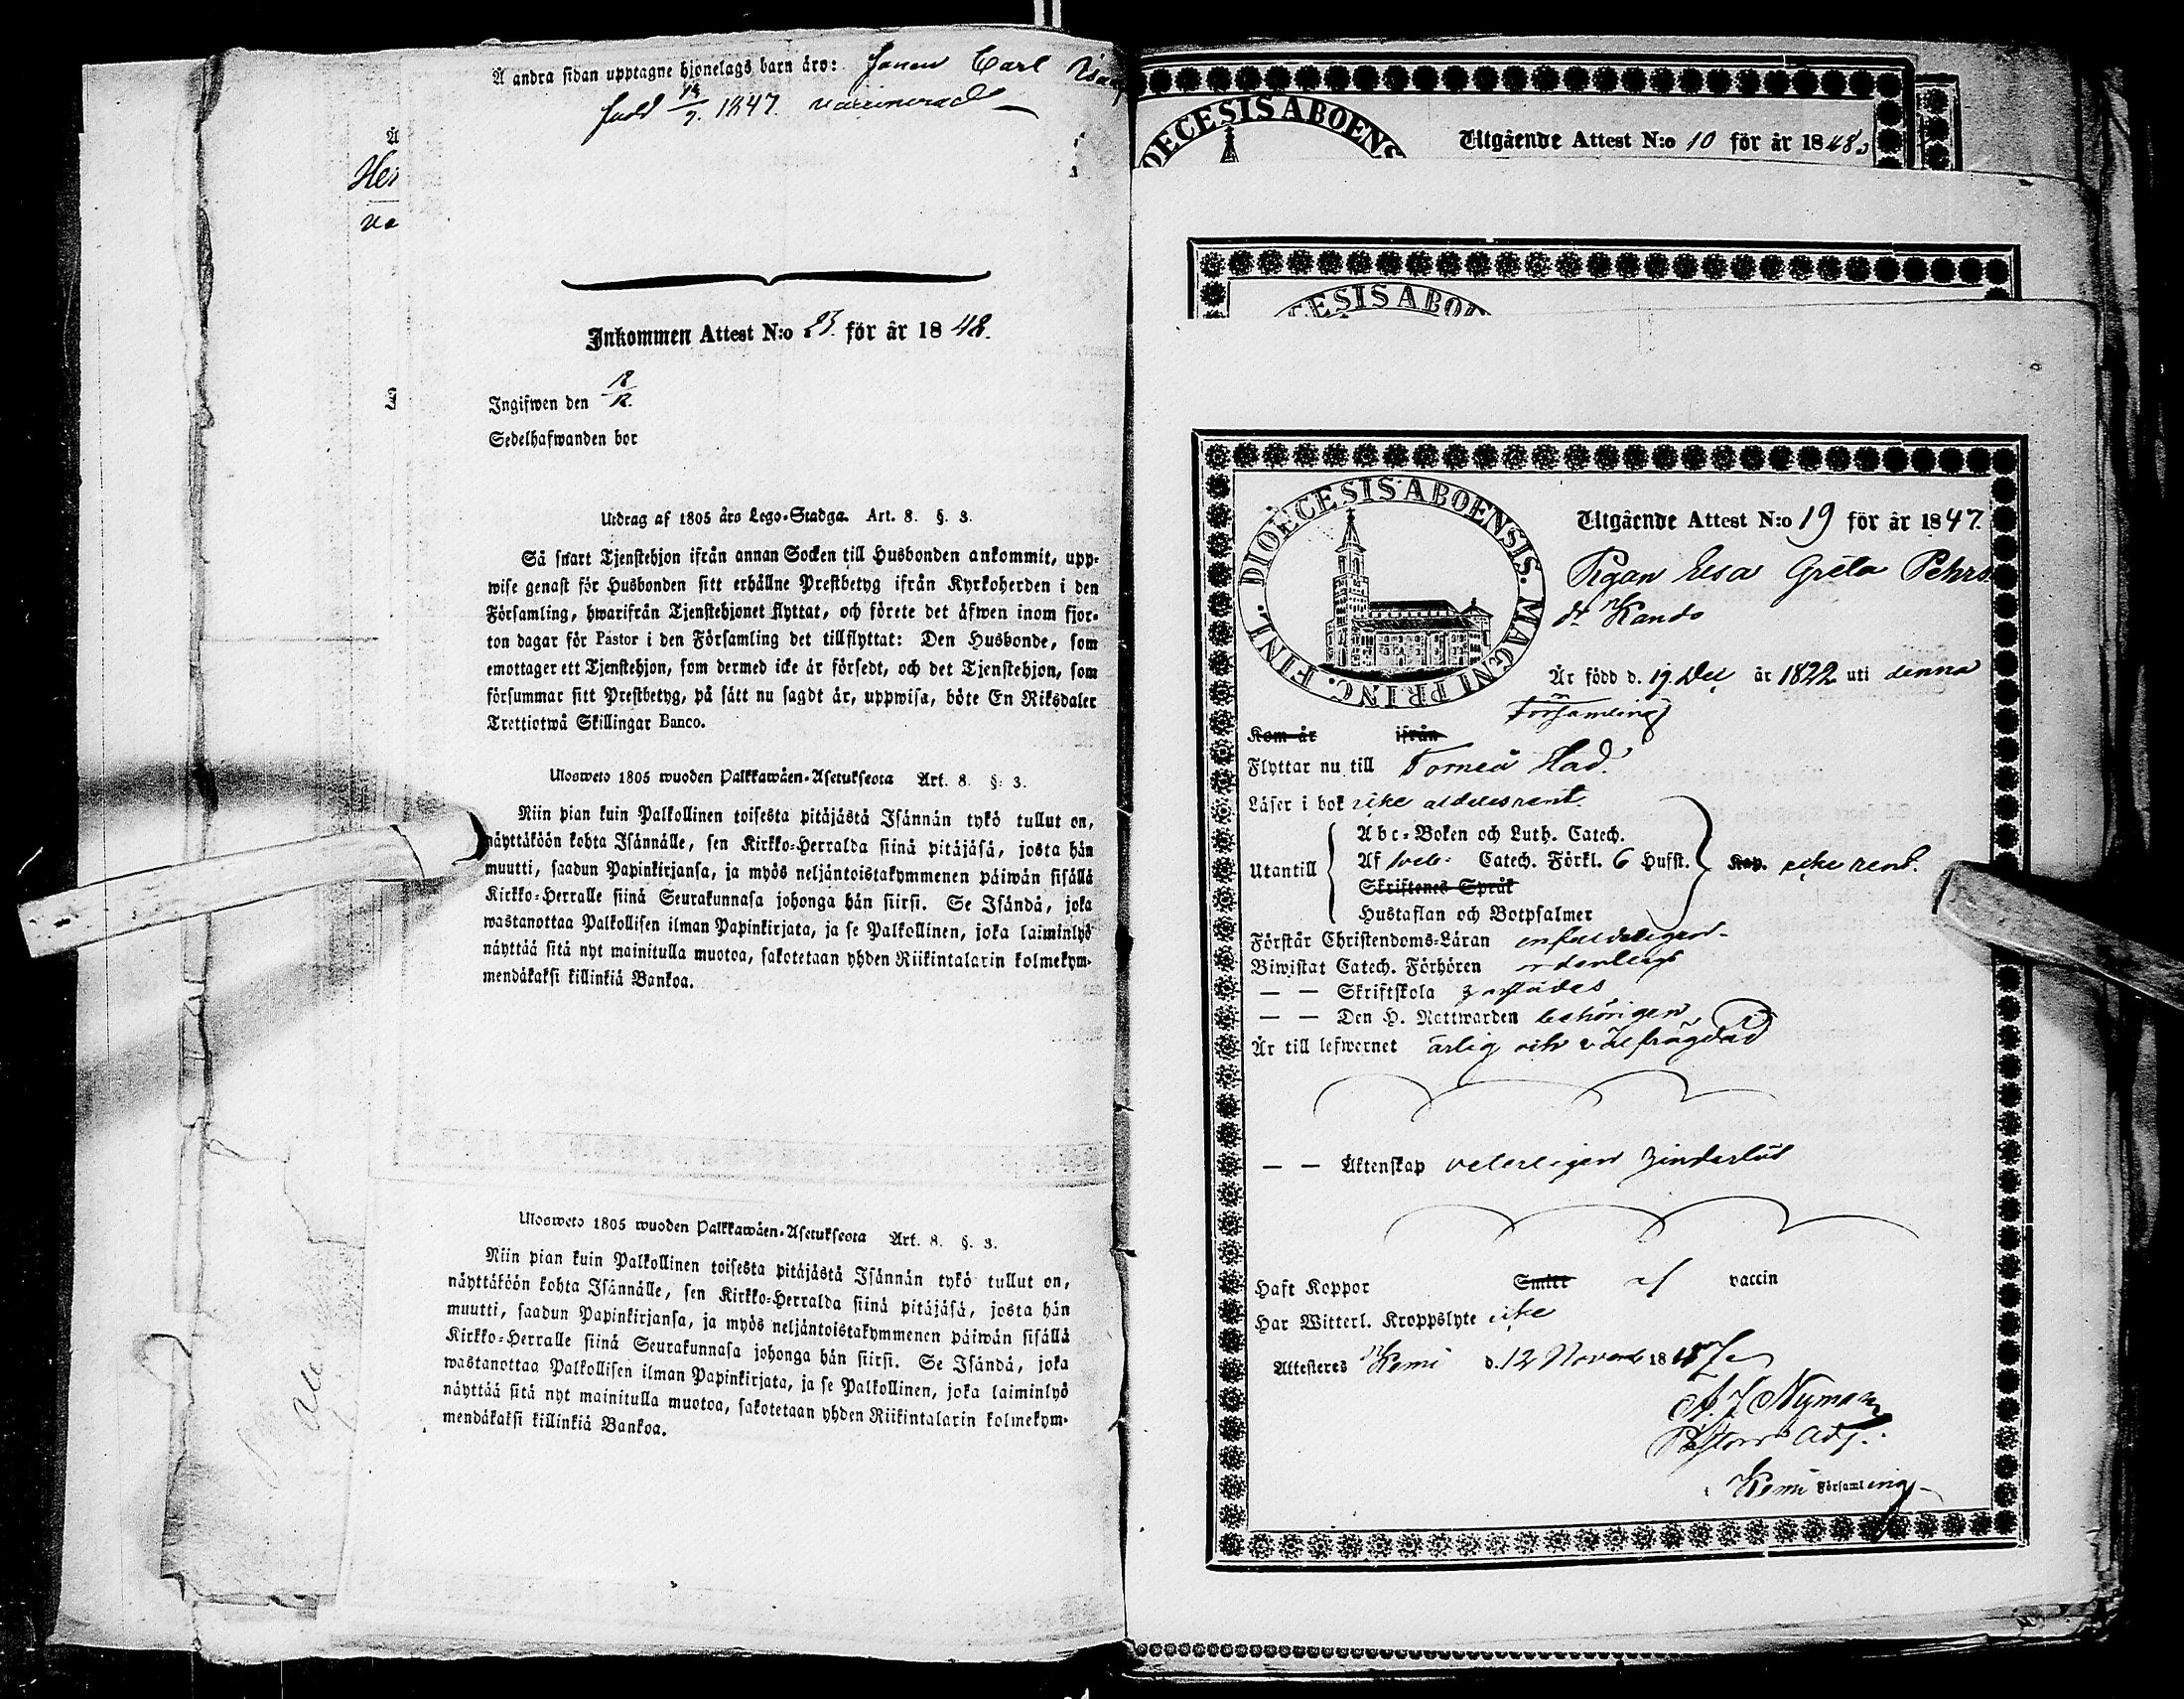 Å andra sidan upptagne hjonelags barn äro: Sonen Carl
född 1847. vaccinerad
Å
Hen
va
Inkommen Attest N:o 23. för år 1848.
Ingifwen den 18/12.
Sedelhafwanden bor
Utdrag af 1805 års Lego-Stadga. Art. 8. §. 3.
Så snart Tjenstehjon ifrån annan Socken till Husbonden ankommit, upp-
wise genast för Husbonden sitt erhållne Prestbetyg ifrån Kyrkoherden i den
Församling, hwarifrån Tjenstehjonet flyttat, och förete det äfwen inom fjor-
ton dagar för Pastor i den Församling det tillflyttat: Den Husbonde, som
emottager ett Tjenstehjon, som dermed icke är försedt, och det Tjenstehjon, som
försummar sitt Prestbetyg, på sätt nu sagdt är, uppwisa, böte En Riksdaler
Trettiotwå Skillingar Banco.
Ulosweto 1805 wuoden Palkkawäen-Asetuksesta Art. 8. §. 3.
Niin pian kuin Palkollinen toisesta pitäjästä Isännän tykö tullut on,
näyttäköön kohta Isännälle, sen Kirkko-Herralda siinä pitäjäsä, josta hän
muutti, saadun Papinkirjansa, ja myös neljäntoistakymmenen päiwän sisällä
Kirkko-Herralle siinä Seurakunnasa johonga hän siirsi. Se Isändä, joka
wastanottaa Palkollisen ilman Papinkirjata, ja se Palkollinen, joka laiminlyö
näyttää sitä nyt mainitulla muotoa, sakotetaan yhden Riikintalarin kolmekym-
mendäkaksi killinkiä Bankoa.
Ulosweto 1805 wuoden Palkkawäen-Asetuksesta Art. 8. §. 3.
Niin pian kuin Palkollinen toisesta pitäjästä Isännän tykö tullut on,
näyttäköön kohta Isännälle, sen Kirkko-Herralda siinä pitäjäsä, josta hän
muutti, saadun Papinkirjansa, ja myös neljäntoistakymmenen päiwän sisällä
Kirkko-Herralle siinä Seurakunnasa johonga hän siirsi. Se Isändä, joka
wastanottaa Palkollisen ilman Papinkirjata, ja se Palkollinen, joka laiminlyö
näyttää sitä nyt mainitulla muotoa, sakotetaan yhden Riikintalarin kolmekym-
mendäkaksi killinkiä Bankoa.
OECESIS ABOENS
Utgående Attest N:o 10 för år 1848.
CESIS ABOE
DIOECESIS ABOENSIS. MAGNI PRINC. FINL.
Utgående Attest N:o 19 för år 1847.
Pigan Elsa Greta Pehrs
dr Kando
Är född d. 19 Dec år 1822 uti denna
Församling
Kom år ifrån
Flyttar nu till Torneå stad.
Läser i bok icke aldelesrent.
Utantill
Abc-Boken och Luth. Catech.
Af Catech. Förkl. 6 Hufst.
Skriftenes Språk
Hustaflan och Botpsalmer
Kap. icke rent.
Förstår Christendoms-Läran enfaldeligen
Biwistat Catech. Förhören ordentligt
— — Skriftskola
— — Den H. Nattwarden behörigen
Är till lefwernet ärlig och välfrägdad
— — Äktenskap veterligen hinderlös
Haft Koppor Smitt af vaccin
Har Witterl. Kroppslyte icke
Attesteres Kemi d. 12 Novemb 1847
A. J Nyman
Pastors Adj.
Kemi Församling